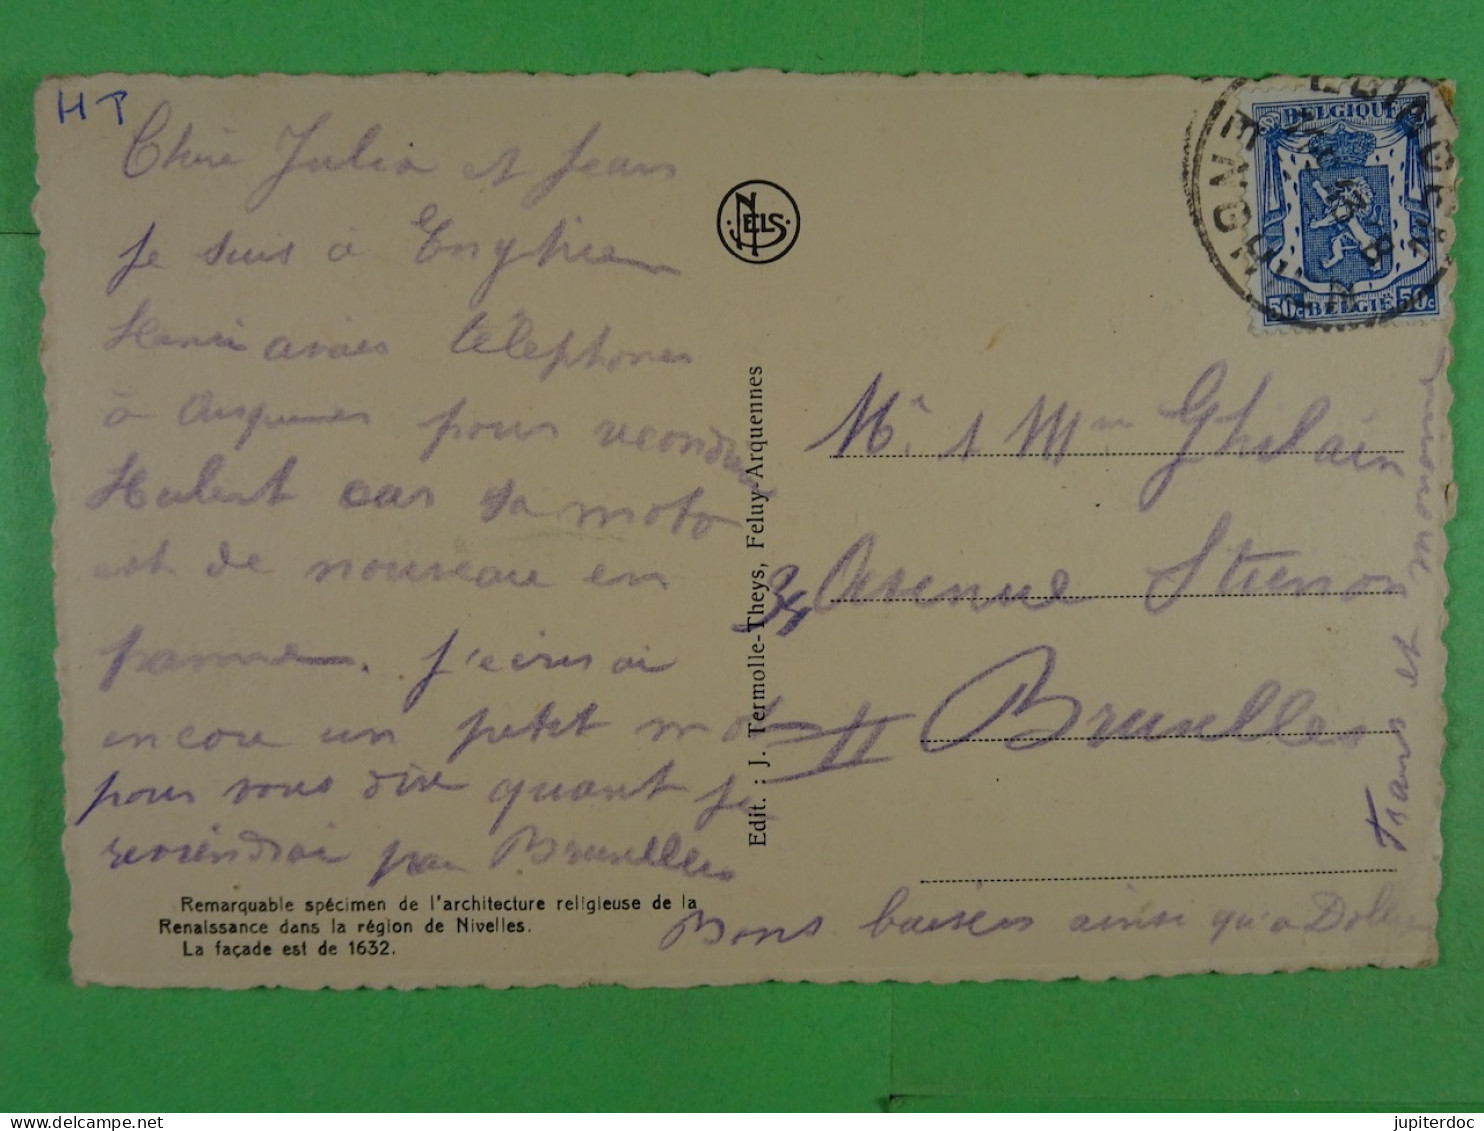 HT
Chère Julia et Jean
je suis à Enghien
Henri avais téléphoner
à pour
Hubert car sa moto
est de nouveau en
panne. j'écrirai
encore un petit mot
pour vous dire quant je
reviendrai par Bruxelles
Bons baisers ainsi qu'a
Frans et
Remarquable spécimen de l'architecture religieuse de la
Renaissance dans la région de Nivelles.
La façade est de 1632.
NELS
Edit. : J. Termolle-Theys, Feluy-Arquennes
BELGIQUE
50c BELGIË 50c
Mr & Mme Ghilain
Avenue Stiénon
Bruxelles II
jupiterdoc